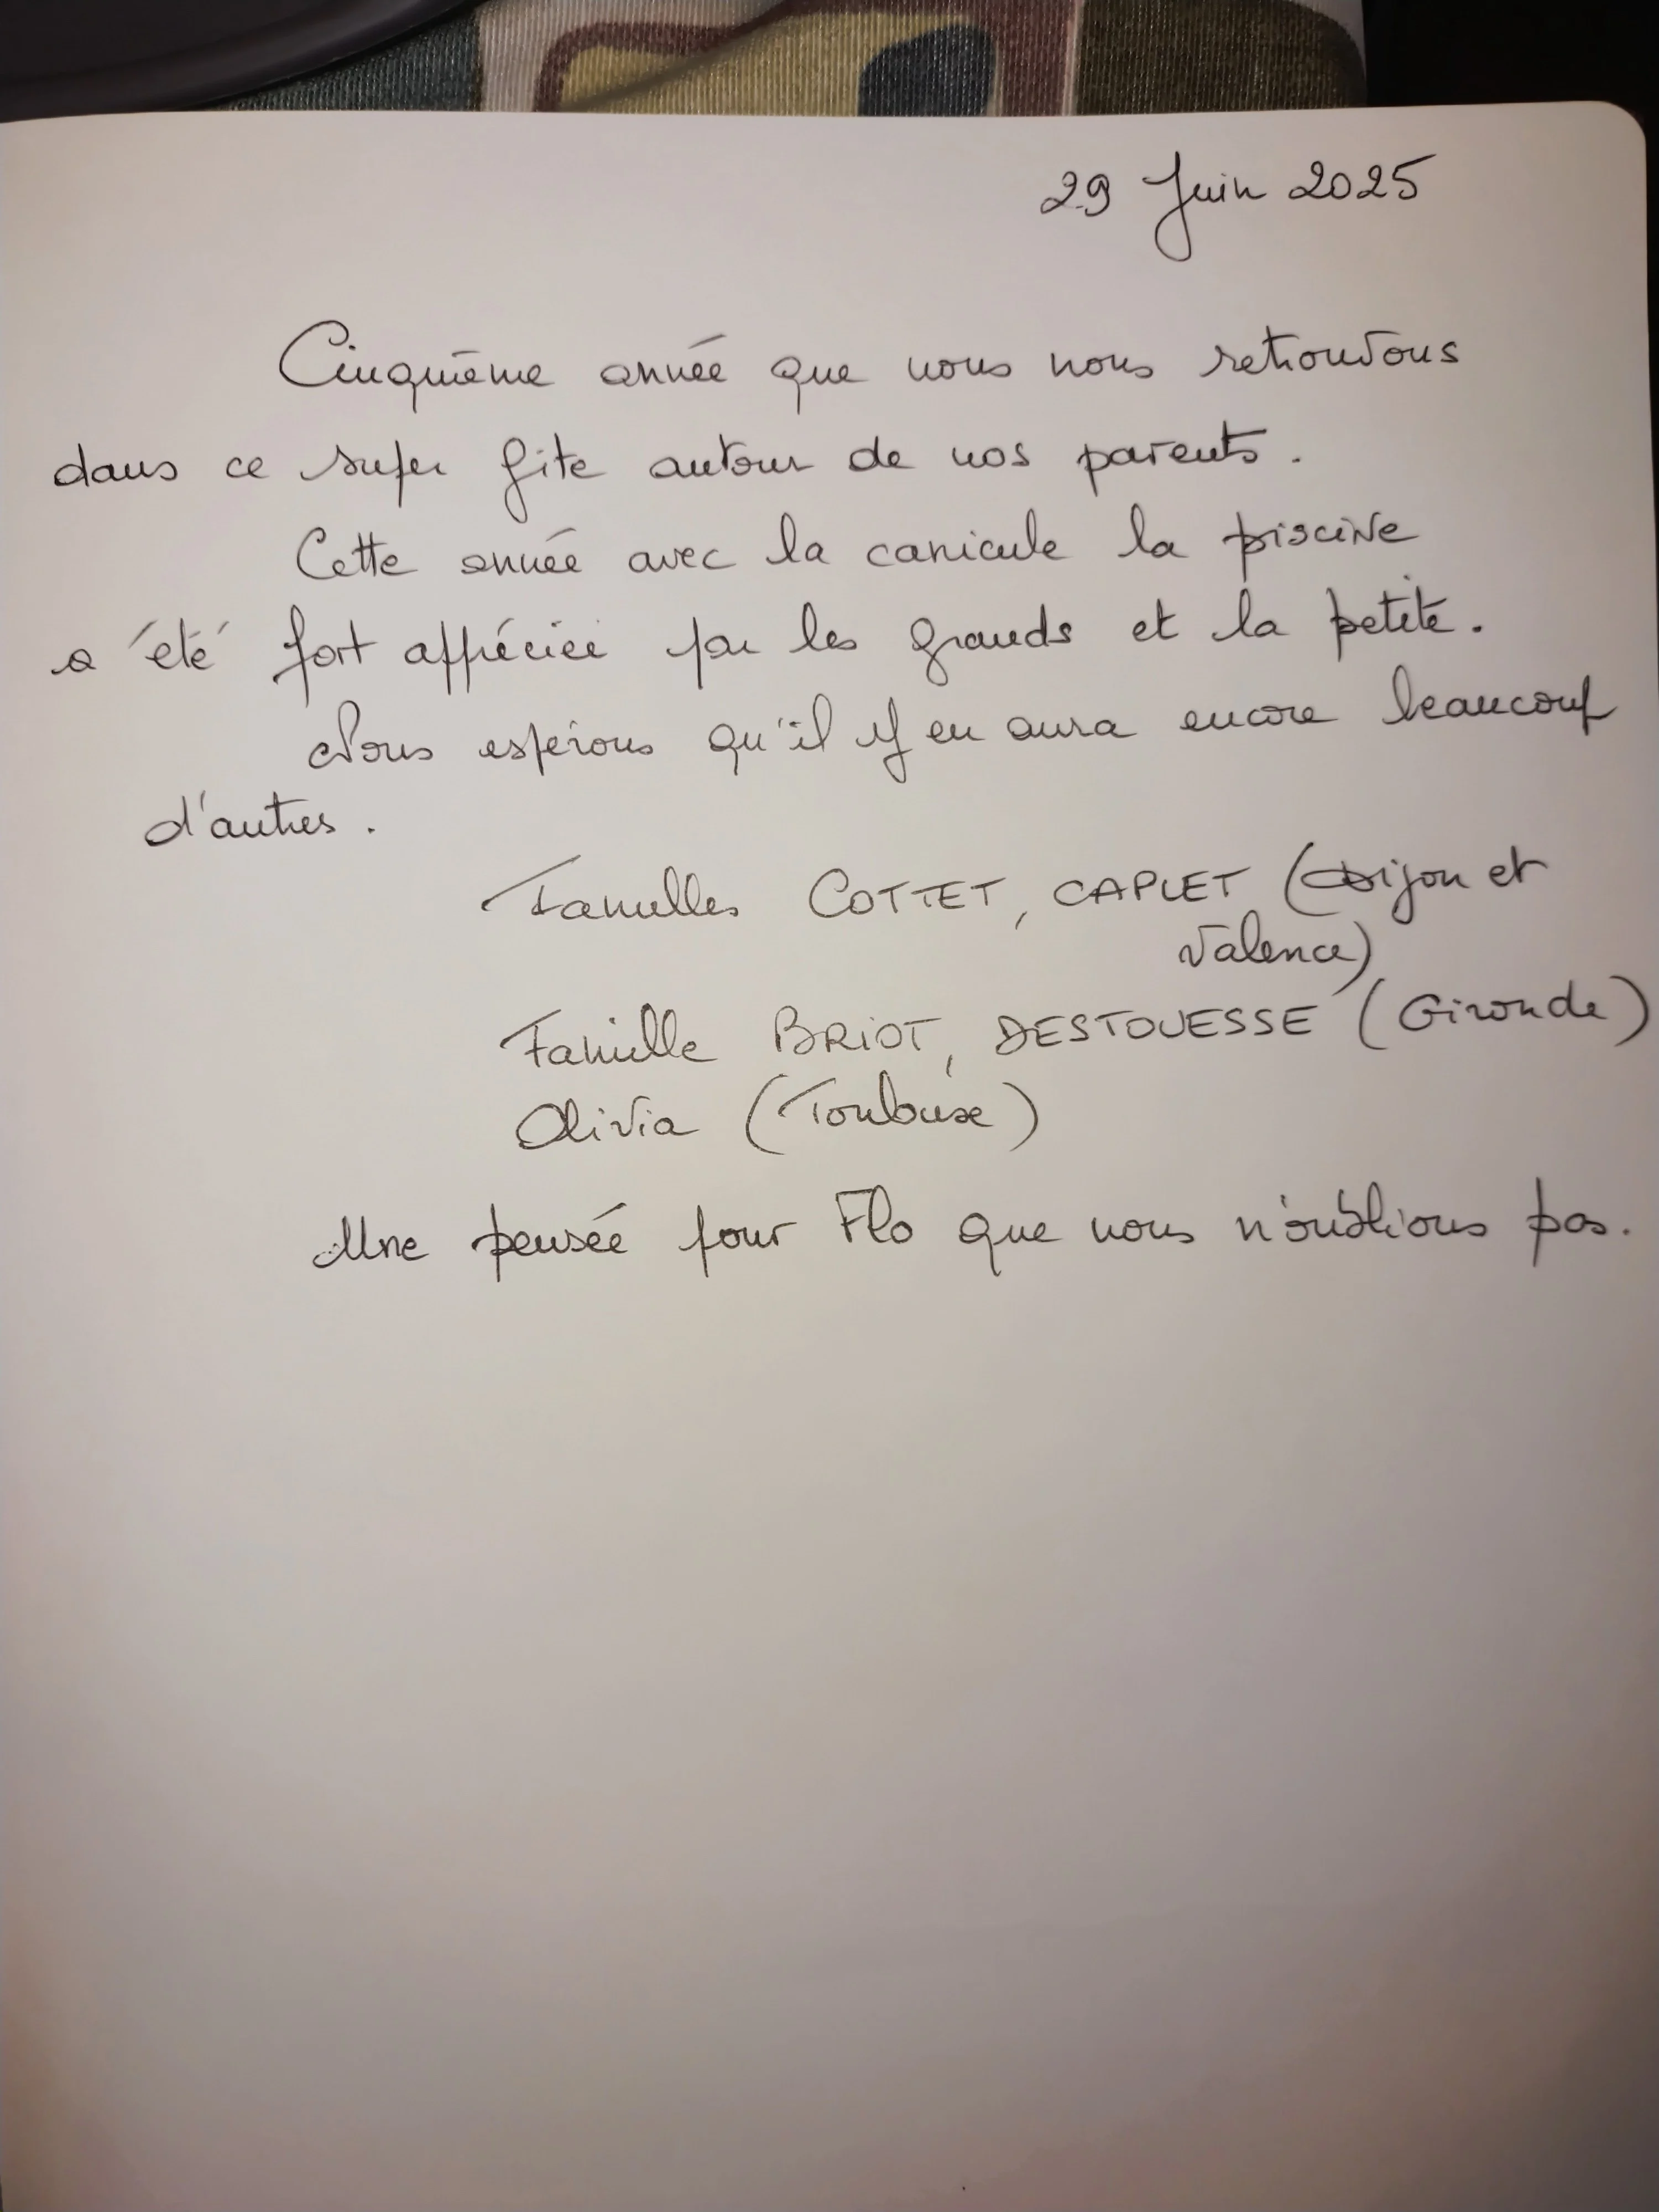 29 Juin 2025
Cinquième année que nous nous retrouvons
dans ce super gite autour de nos parents.
Cette année avec la canicule la piscine
a été fort appréciée par les grands et la petite.
Nous espérons qu'il y en aura encore beaucoup
d'autres.
Familles COTTET, CAPLET (Dijon et
Valence)
Famille BRIOT, DESTOUESSE (Gironde)
Olivia (Toulouse)
Une pensée pour Flo que nous n'oublions pas.